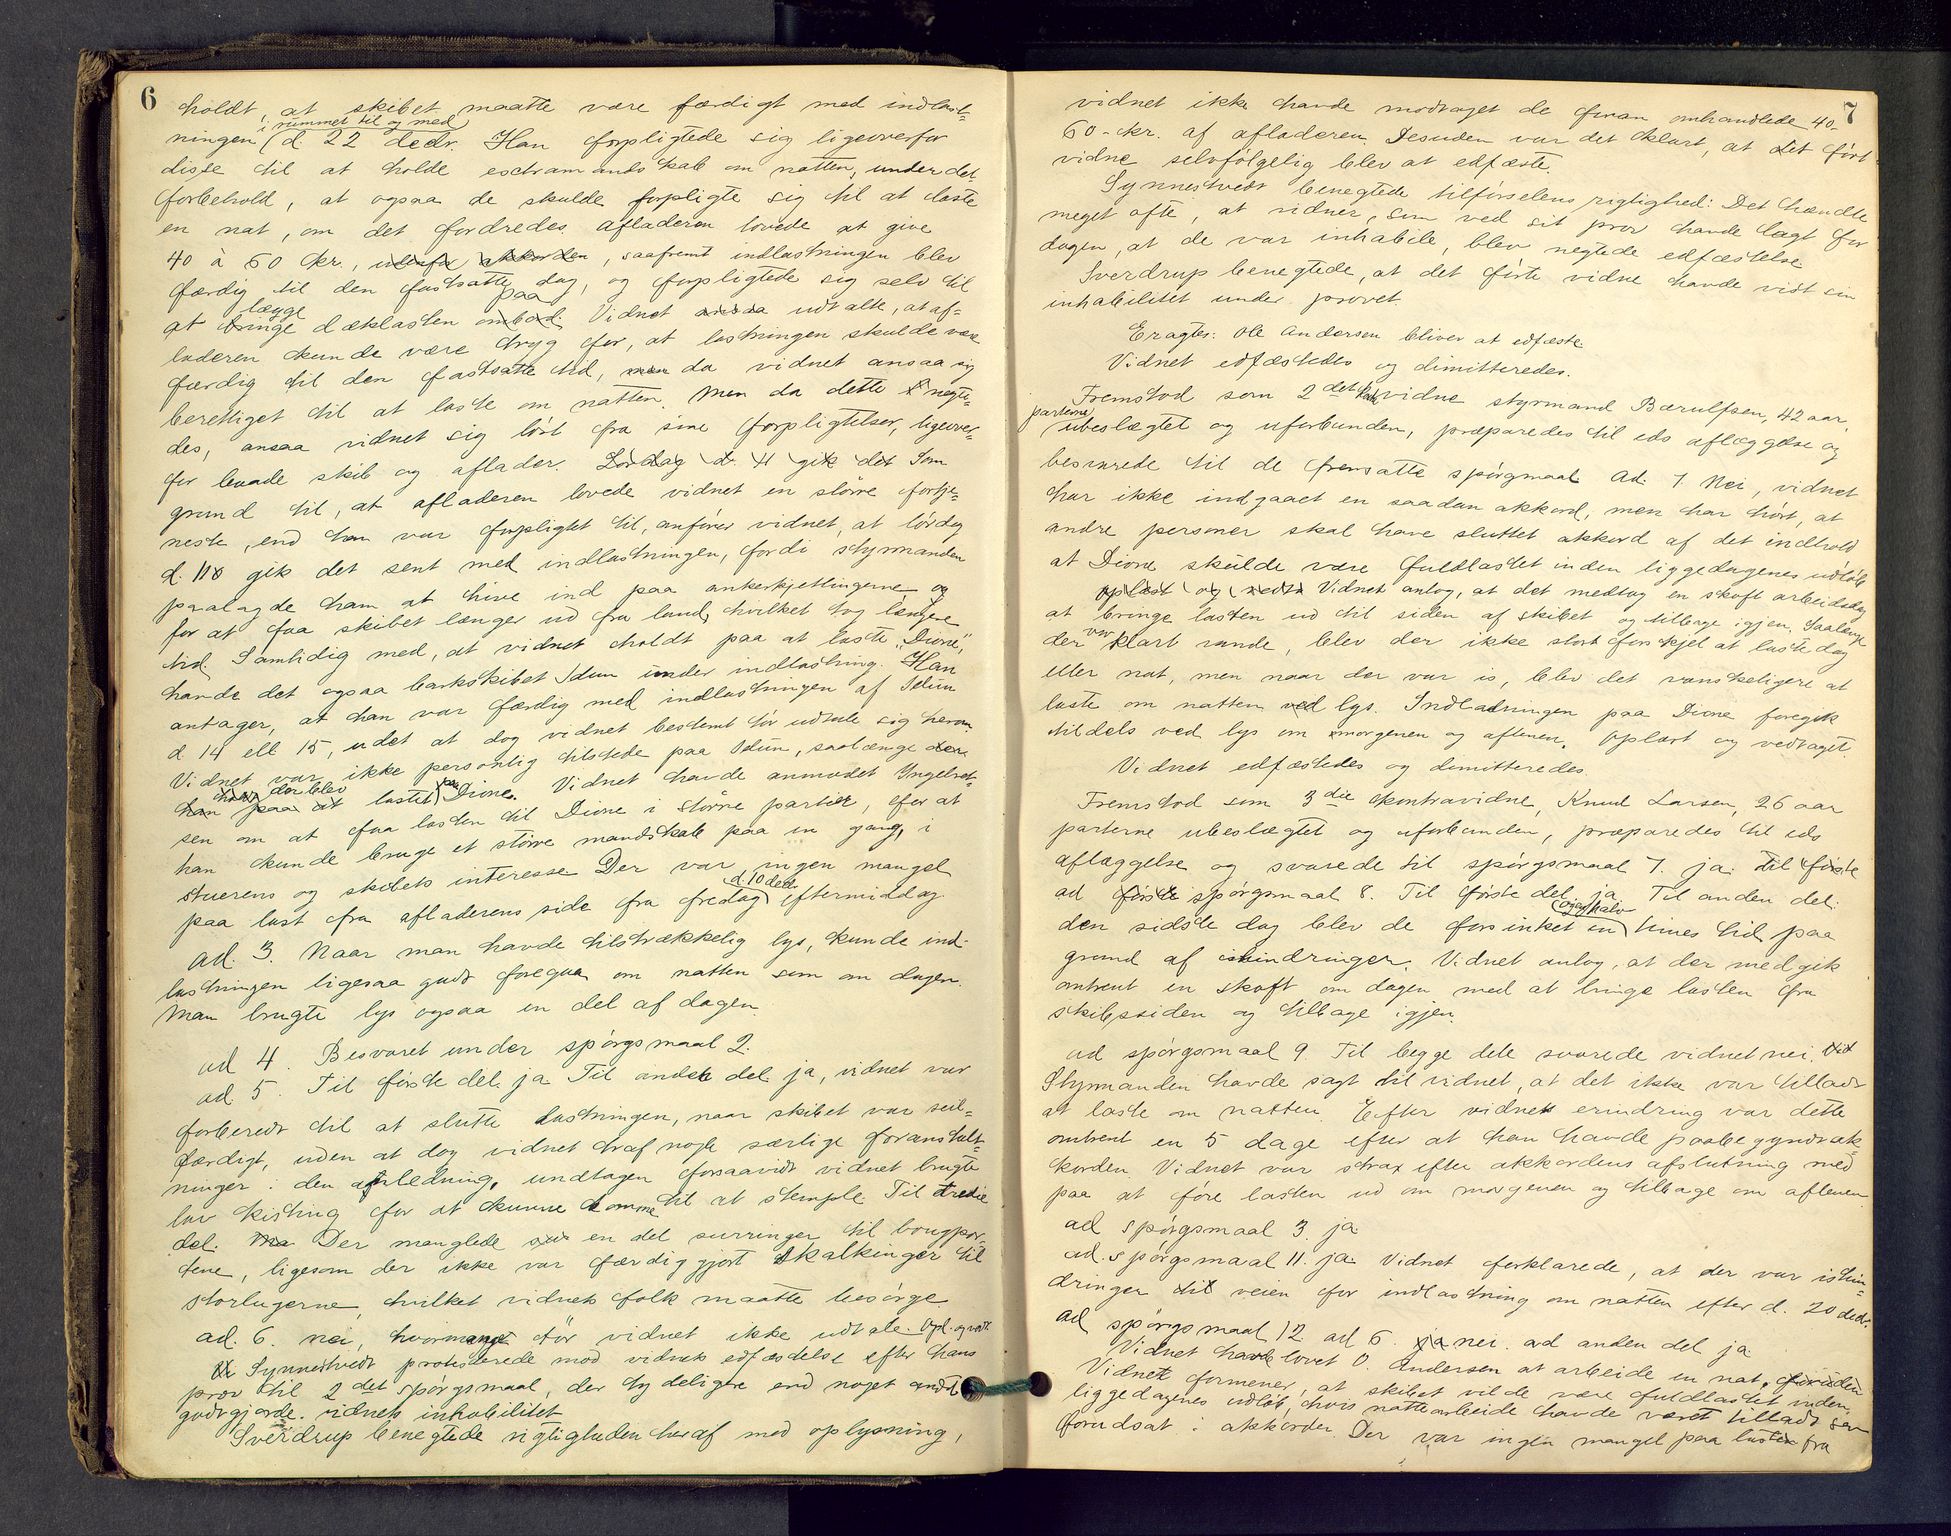 6
holdt, at skibet maatte være færdigt med indlast-
i rummet til og med
ningen d. 22 decbr. Han forpligtede sig ligeoverfor
disse til at holde extramandskab om natten, under det
forbehold, at ogsaa de skulde forpligte sig til at laste
en nat, om det fordredes. afladeren lovede at give
40 à 60 kr., udenfor akkorden, saafremt indlastningen blev
færdig til den fastsatte dag, og forpligtede sig selv til
lægge paa
at bringe dækslasten ombord. Vidnet ansaa udtalte, at af-
laderen kunde være tryg for, at lastningen skulde være
færdig til den fastsatte tid, men da vidnet ansaa sig
berettiget til at laste om natten. Men da dette negte-
des, ansaa vidnet sig løst fra sine forpligtelser, ligeover-
for baade skib og aflader. Lørdag d. 11 gik det Som
grund til, at afladeren lovede vidnet en større fortje-
neste, end han var forpligtet til, anfører vidnet, at lørdag
d. 11 gik det sent med indlastningen, fordi styrmanden
paalagde ham at hive ind paa ankerkjettingerne og
for at faa skibet længer ud fra land, hvilket tog længere
tid. Samtidig med, at vidnet holdt paa at laste "Dione",
havde det ogsaa barkskibet Idun under indlastning. Han
antager, at han var færdig med indlastningen af Idun
d 14 ell 15, uden at dog vidnet bestemt tør udtale sig herom.
Vidnet var ikke personlig tilstede paa Idun, saalænge der
der blev paa
han paa at lastet Dione. Vidnet havde anmodet Yngelret-
sen om at faa lasten til Dione i større partier, for at
han kunde bruge et større mandskab paa en gang, i
stuerens og skibets interesse. Der var ingen mangel
d. 10 decb
paa last fra afladerens side fra fredag eftermiddag
ad. 3. Naar man havde tilstrækkelig lys, kunde ind-
lastningen ligesaa godt foregaa om natten som om dagen.
Man brugte lys ogsaa en del af dagen.
ad 4. Besvaret under spørgsmaal 2.
ad. 5. Til første del ja. Til anden del ja, vidnet var
forberedt til at slutte lastningen, naar skibet var seil-
færdigt, uden at dog vidnet traf nogle særlige foranstalt-
ninger i den anledning, undtagen forsaavidt vidnet brugte
lav kisting for at kunne komme til at stemple. Til tredie
del: Ma Der manglede en del surringer til bougpor-
tene, ligesom der ikke var færdiggjort skalkinger til
storlugerne, hvilket vidnets folk maatte besørge.
ad. 6. nei, hvormange tør vidnet ikke udtale. Opl. og vedt.
Synnestvedt protesterede mod vidnets edfæstelse efter hans
prov til 2det spørgsmaal, der tydeligere end noget andet
godtgjorde vidnets inhabilitet.
Sverdrup benegtede rigtigheden heraf med oplysning,
7
vidnet ikke havde modtaget de foran omhandlede 40-
60 kr. af afladeren. Desuden var det klart, at det ført
vidne selvfølgelig blev at edfæste.
Synnestvedt benegtede tilførselens rigtighed: Det hændte
meget ofte, at vidner, som ved sit prov havde lagt for
dagen, at de var inhabile, blev negtede edfæstelse
Sverdrup benegtede, at det førte vidne havde vist sin
inhabilitet under provet.
Eragtes: Ole Andersen bliver at edfæste
Vidnet edfæstedes og dimitteredes.
Fremstod som 2det vidne styrmand Bærulfsen, 42 aar,
parterne
ubeslægtet og uforbunden, præparedes til eds aflæggelse og
besvarede til de fremsatte spørgmaal. ad. 7. Nei, vidnet
har ikke indgaaet en saadan akkord, men har hørt, at
andre personer skal have sluttet akkord af det indhold
at Dione skulde være fuldlastet inden liggedagenes udløb
oplæst og vedta Vidnet antog, at det medtog en skoft arbeidsdag
at bringe lasten ud til siden af skibet og tilbage igjen. Saalænge
der var klart vande, blev der ikke stor forskjel at laste dag
eller nat, men naar der var is, blev det vanskeligere at
laste om natten ved lys. Indladningen paa Dione foregik
tildels ved lys om morgenen og aftenen. Oplæst og vedtaget.
Vidnet edfæstedes og dimitteredes.
Fremstod som 3die kontravidne, Knud Larsen, 26 aar
parterne ubeslægtet og uforbunden, præparedes til eds
aflæggelse og svarede til spørgsmaal 7. ja. Til første
ad første spørgsmaal 8. Til første del ja. Til anden del:
og en halv
den sidste dag blev de forsinket en times tid paa
grund af ishindringer. Vidnet antog, at der medgik
omtrent en skoft om dagen med at bringe lasten fra
skibssiden og tilbage igjen.
ad spørgsmaal 9. Til begge dele svarede vidnet nei.
Styrmanden havde sagt til vidnet, at det ikke var tilladt
at laste om natten. Efter vidnets erindring var dette
omtrent en 5 dage efter at han havde paabegyndt ak-
korden. Vidnet var strax efter akkordens afslutning med
paa at føre lasten ud om morgenen og tilbage om aftenen
ad spørgsmaal 3. ja
ad. spørgsmaal 11. ja. Vidnet forklarede, at der var ishin-
dringer til veien for indlastning om natten efter d. 20 decbr.
ad spørgsmaal 12 ad 6. ja nei. ad anden del ja
Vidnet havde lovet O. Andersen at arbeide en nat.
Vidnet formener, at skibet vilde være fuldlastet inden
liggedagenes udløb, hvis nattearbeide havde været tilladt som
forudsat i akkorden. Der var ingen mangel paa lasten fra